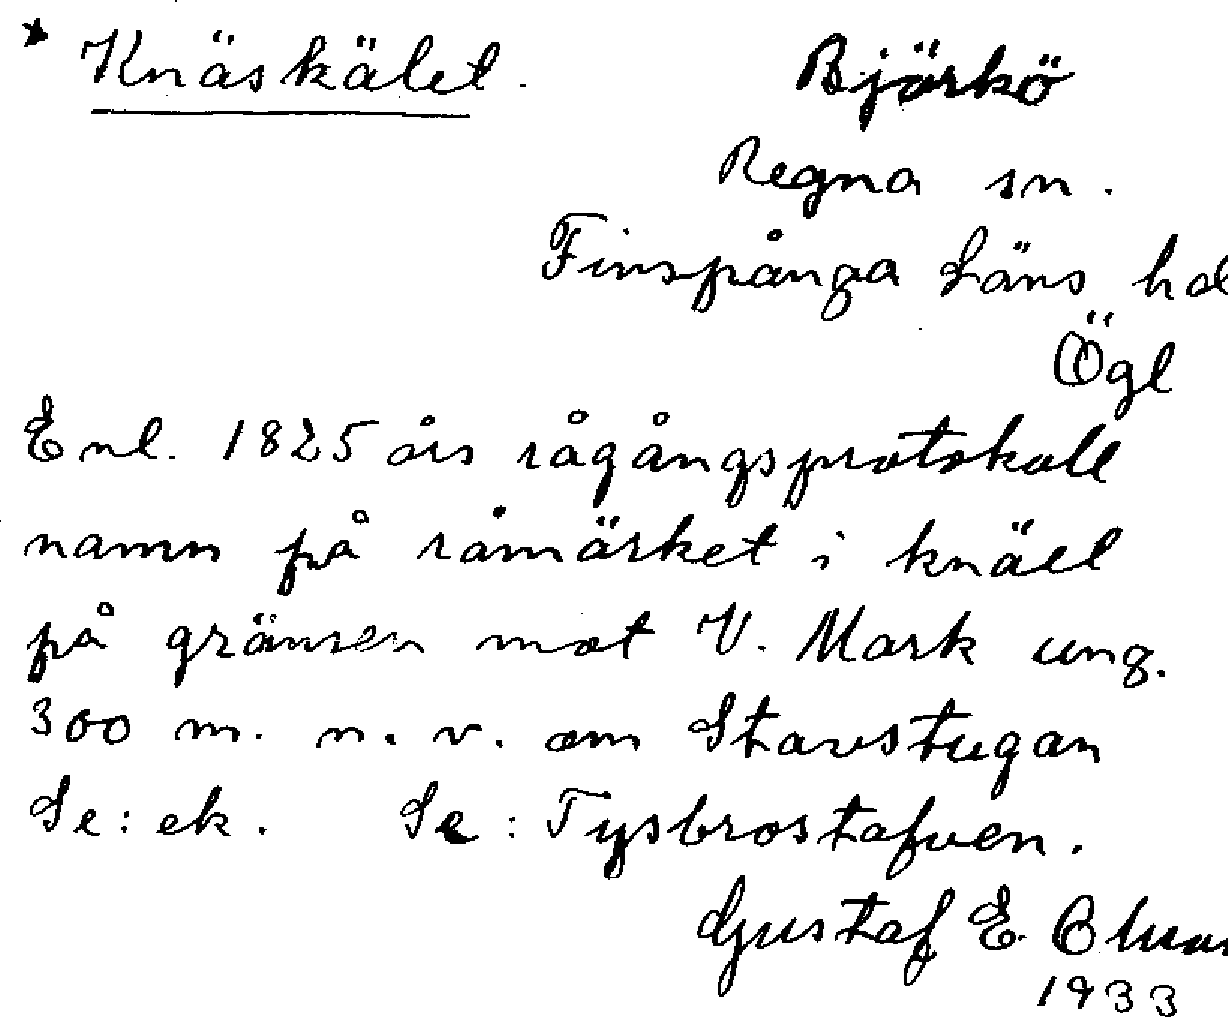 * Knäskälet. Björkö
Regna sn.
Finspånga Läns hd
Ögl
Enl. 1825 års rågångsprotokoll
namn på råmärket i knäet
på gränsen mot V. Mark ung.
300 m. n. v. om Stavstugan
Se: ek. Se: Tysbrostafven.
Gustaf E.
1933